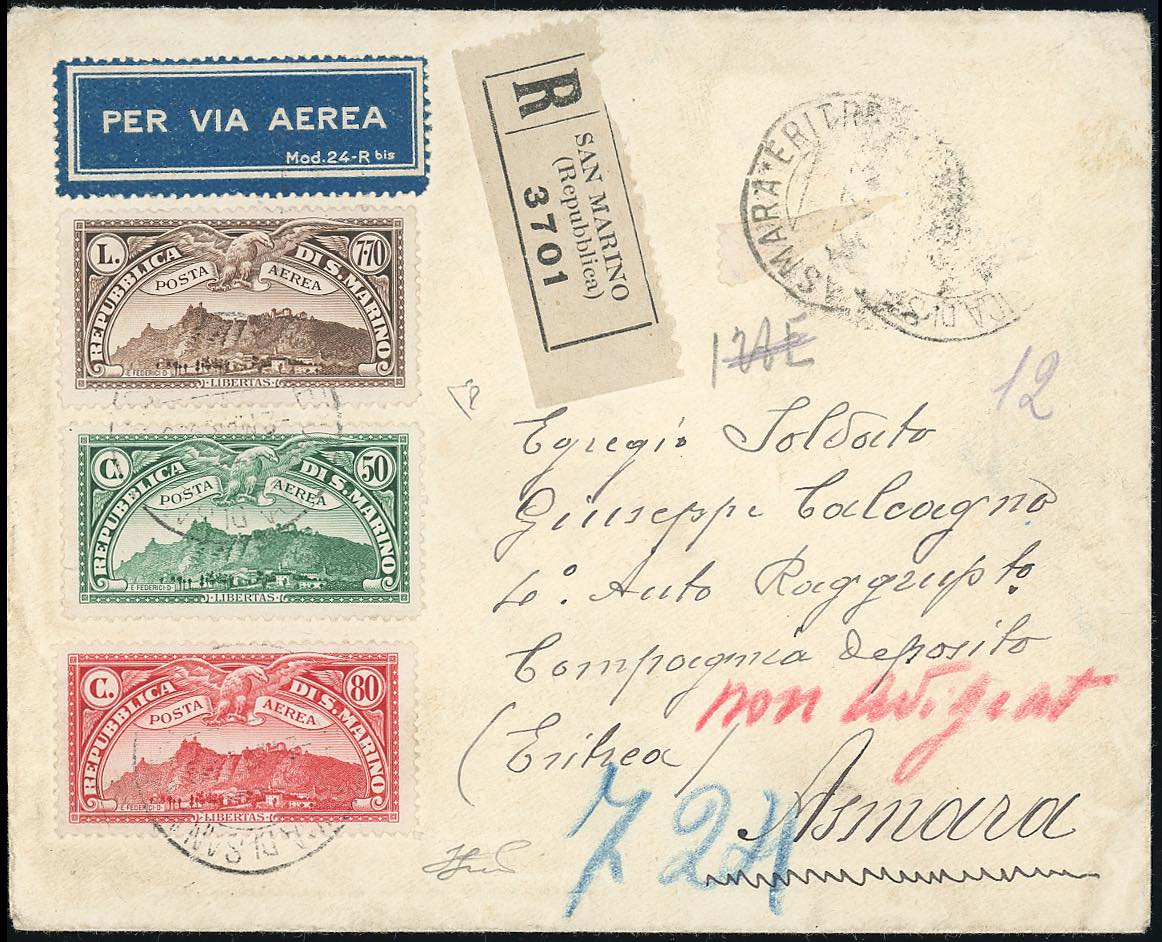 PER VIA AEREA
Mod.24-R bis
L. 7·70
REPUBBLICA DI S. MARINO
POSTA AEREA
E. FEDERICI·D·
·LIBERTAS·
C. 50
REPUBBLICA DI S. MARINO
POSTA AEREA
E. FEDERICI·D·
·LIBERTAS·
C. 80
REPUBBLICA DI S. MARINO
POSTA AEREA
E. FEDERICI·D·
·LIBERTAS·
DI SAN
R
SAN MARINO
(Repubblica)
3701
ASMARA ERITREA
12
Egregio Soldato
Giuseppe Calcagno
4º. Auto Raggrupto.
Compagnia deposito
non
(Eritrea)
Asmara
724